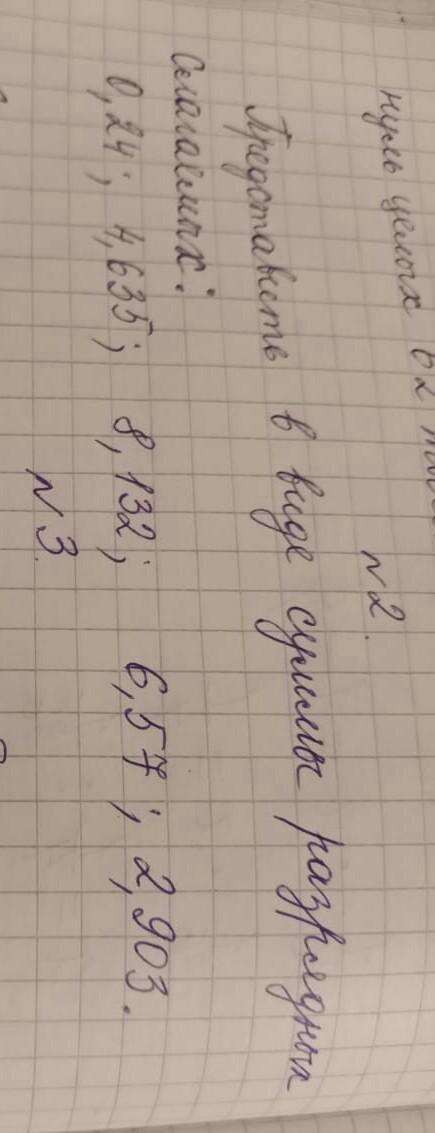 нуль целых 62
№2.
Представить в виде суммы разрядных
слагаемых:
0,24; 4,635; 8,132; 6,57; 2,903.
№3.